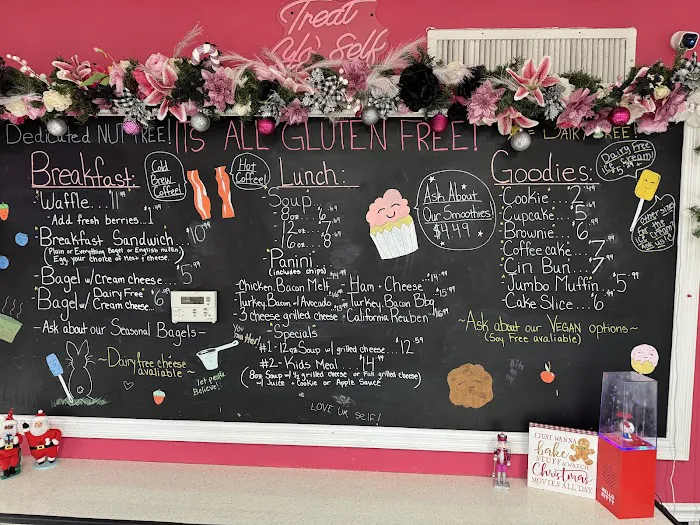 Treat
Yo' Self
Dedicated NUT FREE!
IS ALL GLUTEN FREE!
= DAIRY FREE!
Breakfast:
Waffle...11.99
-Add fresh berries..1
Breakfast Sandwich...10.99
(Plain or Everything Bagel or English muffin)
(Egg, your choice of meat & cheese)
Bagel w/cream cheese...5.99
Bagel w/ Dairy Free
Cream cheese..6
-Ask about our Seasonal Bagels-
~Dairy free cheese
avaliable~
Cold
Brew
Coffee!
Hot
Coffee!
Lunch:
Soup
8oz...6
12oz...7
16oz...8
Panini
(includes chips)
Chicken, Bacon Melt
Turkey, Bacon + Avocado
3 cheese grilled cheese
Ham + Cheese...14.99
Turkey, Bacon Bbq
California Reuben
"Specials"
#1-12oz Soup w/ grilled cheese...12.59
#2-Kids Meal...14.99
(8oz Soup w/ ½ grilled cheese or Full grilled cheese)
w/ Juice + Cookie or Apple Sauce
You
matter!
let people
Believe!
LOVE UR self!
Ask About
Our Smoothies!
$4.49
Goodies:
Cookie...2.99
Cupcake...5
Brownie...6
Coffee cake...7
Cin Bun...7
Jumbo Muffin...5.99
Cake Slice...6
~Ask about our VEGAN options~
(Soy Free avaliable)
Dairy Free
Ice Cream!
other sizes
for the
ice cream
Ask Us!
I JUST WANNA
bake
STUFF & WATCH
Christmas
MOVIES ALL DAY
HELLO
KITTY